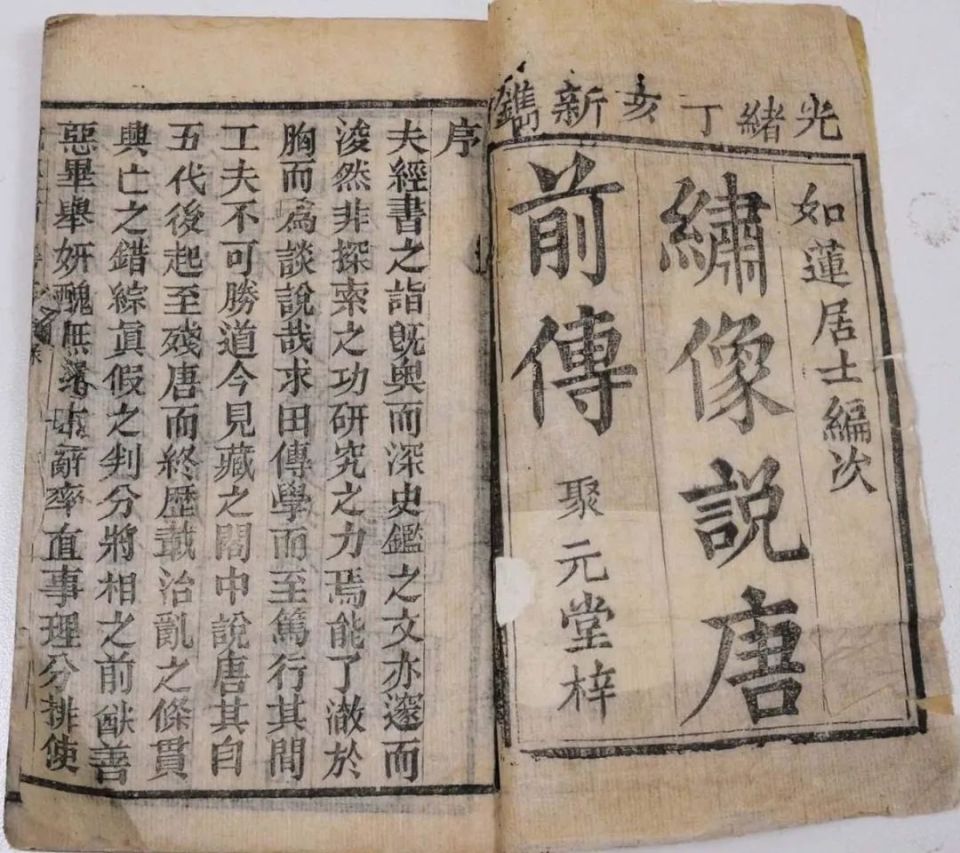 光緒丁亥新鐫
如蓮居士編次
繡像説唐
前傳
聚元堂梓
序
夫經書之詣旣奥而深史鑑之文亦邃而
浚然非探索之功研究之力焉能了澈於
胸而為談說哉求田傳學而至篤行其間
工夫不可勝道今見藏之閣中說唐其自
五代後起至殘唐而終歷載治亂之條貫
興亡之錯綜眞假之判分將相之前猷善
惡畢舉妍醜無辭率直事理分排使